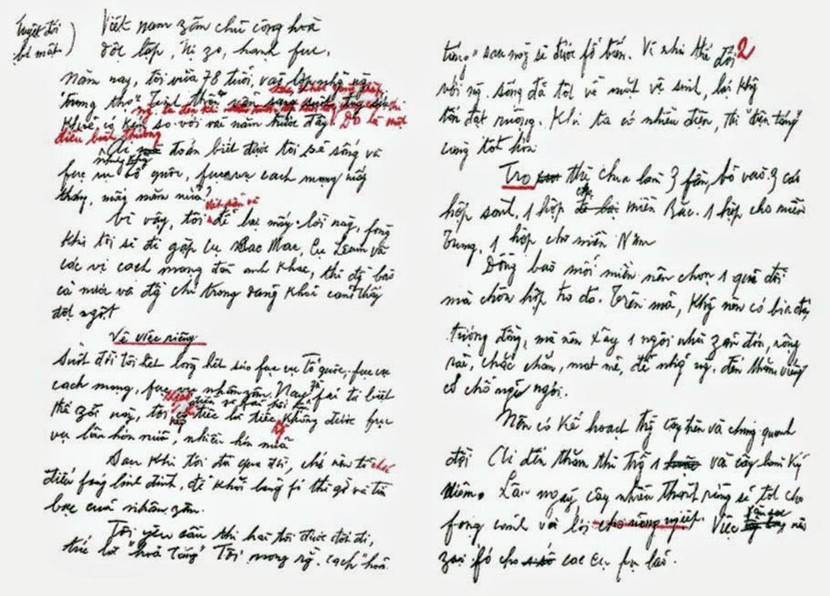 Tuyệt đối
bí mật
Việt nam zân chủ cộng hoà
độc lập, tự zo, hạnh fúc.
Năm nay, tôi vừa 78 tuổi, vào lớp những người
"trung thọ". Tinh thần
khoẻ có kém so với vài năm trước đây. Đó là một
điều bình thường
Ai mà đoán biết được tôi sẽ sống và
fục vụ tổ quốc, fục vụ cách mạng mấy
tháng, mấy năm nữa?
Vì vậy, tôi để lại mấy lời này, fòng
khi tôi sẽ đi gặp cụ Các Mác, cụ Lênin và
các vị cách mạng đàn anh khác, thì đồng bào
cả nước và đồng chí trong đảng khỏi cảm thấy
đột ngột
Về việc riêng
Suốt đời tôi hết lòng hết sức fục vụ Tổ quốc, fục vụ
cách mạng, fục vụ nhân zân. Nay zù fải từ biệt
thế zới này, tôi không có điều gì fải hối hận,
chỉ tiếc là tiếc không được fục
vụ lâu hơn nữa, nhiều hơn nữa
Sau khi tôi đã qua đời, chớ nên tổ chức
điếu fúng linh đình, để khỏi lãng fí thì giờ và tiền
bạc của nhân zân.
Tôi yêu cầu thi hài tôi được đốt đi,
tức là "hoả táng". Tôi mong rằng cách "hoả
2
táng" sau này sẽ được fổ biến. Vì như thế đối
với người sống đã tốt về mặt vệ sinh, lại không
tốn đất ruộng. Khi ta có nhiều điện, thì "điện táng"
càng tốt hơn.
Tro thì chia làm 3 fần, bỏ vào 3 cái
hộp sành, 1 hộp cho miền Bắc. 1 hộp cho miền
Trung, 1 hộp cho miền Nam
Đồng bào mỗi miền nên chọn 1 quả đồi
mà chôn hộp tro đó. Trên mả, không nên có bia đá
tượng đồng, mà nên xây 1 ngôi nhà zản đơn, rộng
rãi, chắc chắn, mát mẻ, để những người đến thăm viếng
có chỗ nghỉ ngơi.
Nên có kế hoạch trồng cây trên và chung quanh
đồi. Ai đến thăm thì trồng 1 và cây làm kỷ
niệm. Lâu ngày, cây nhiều thành rừng sẽ tốt cho
fong cảnh và lợi cho nông nghiệp. Việc săn sóc nên
zao fó cho các cụ fụ lão.